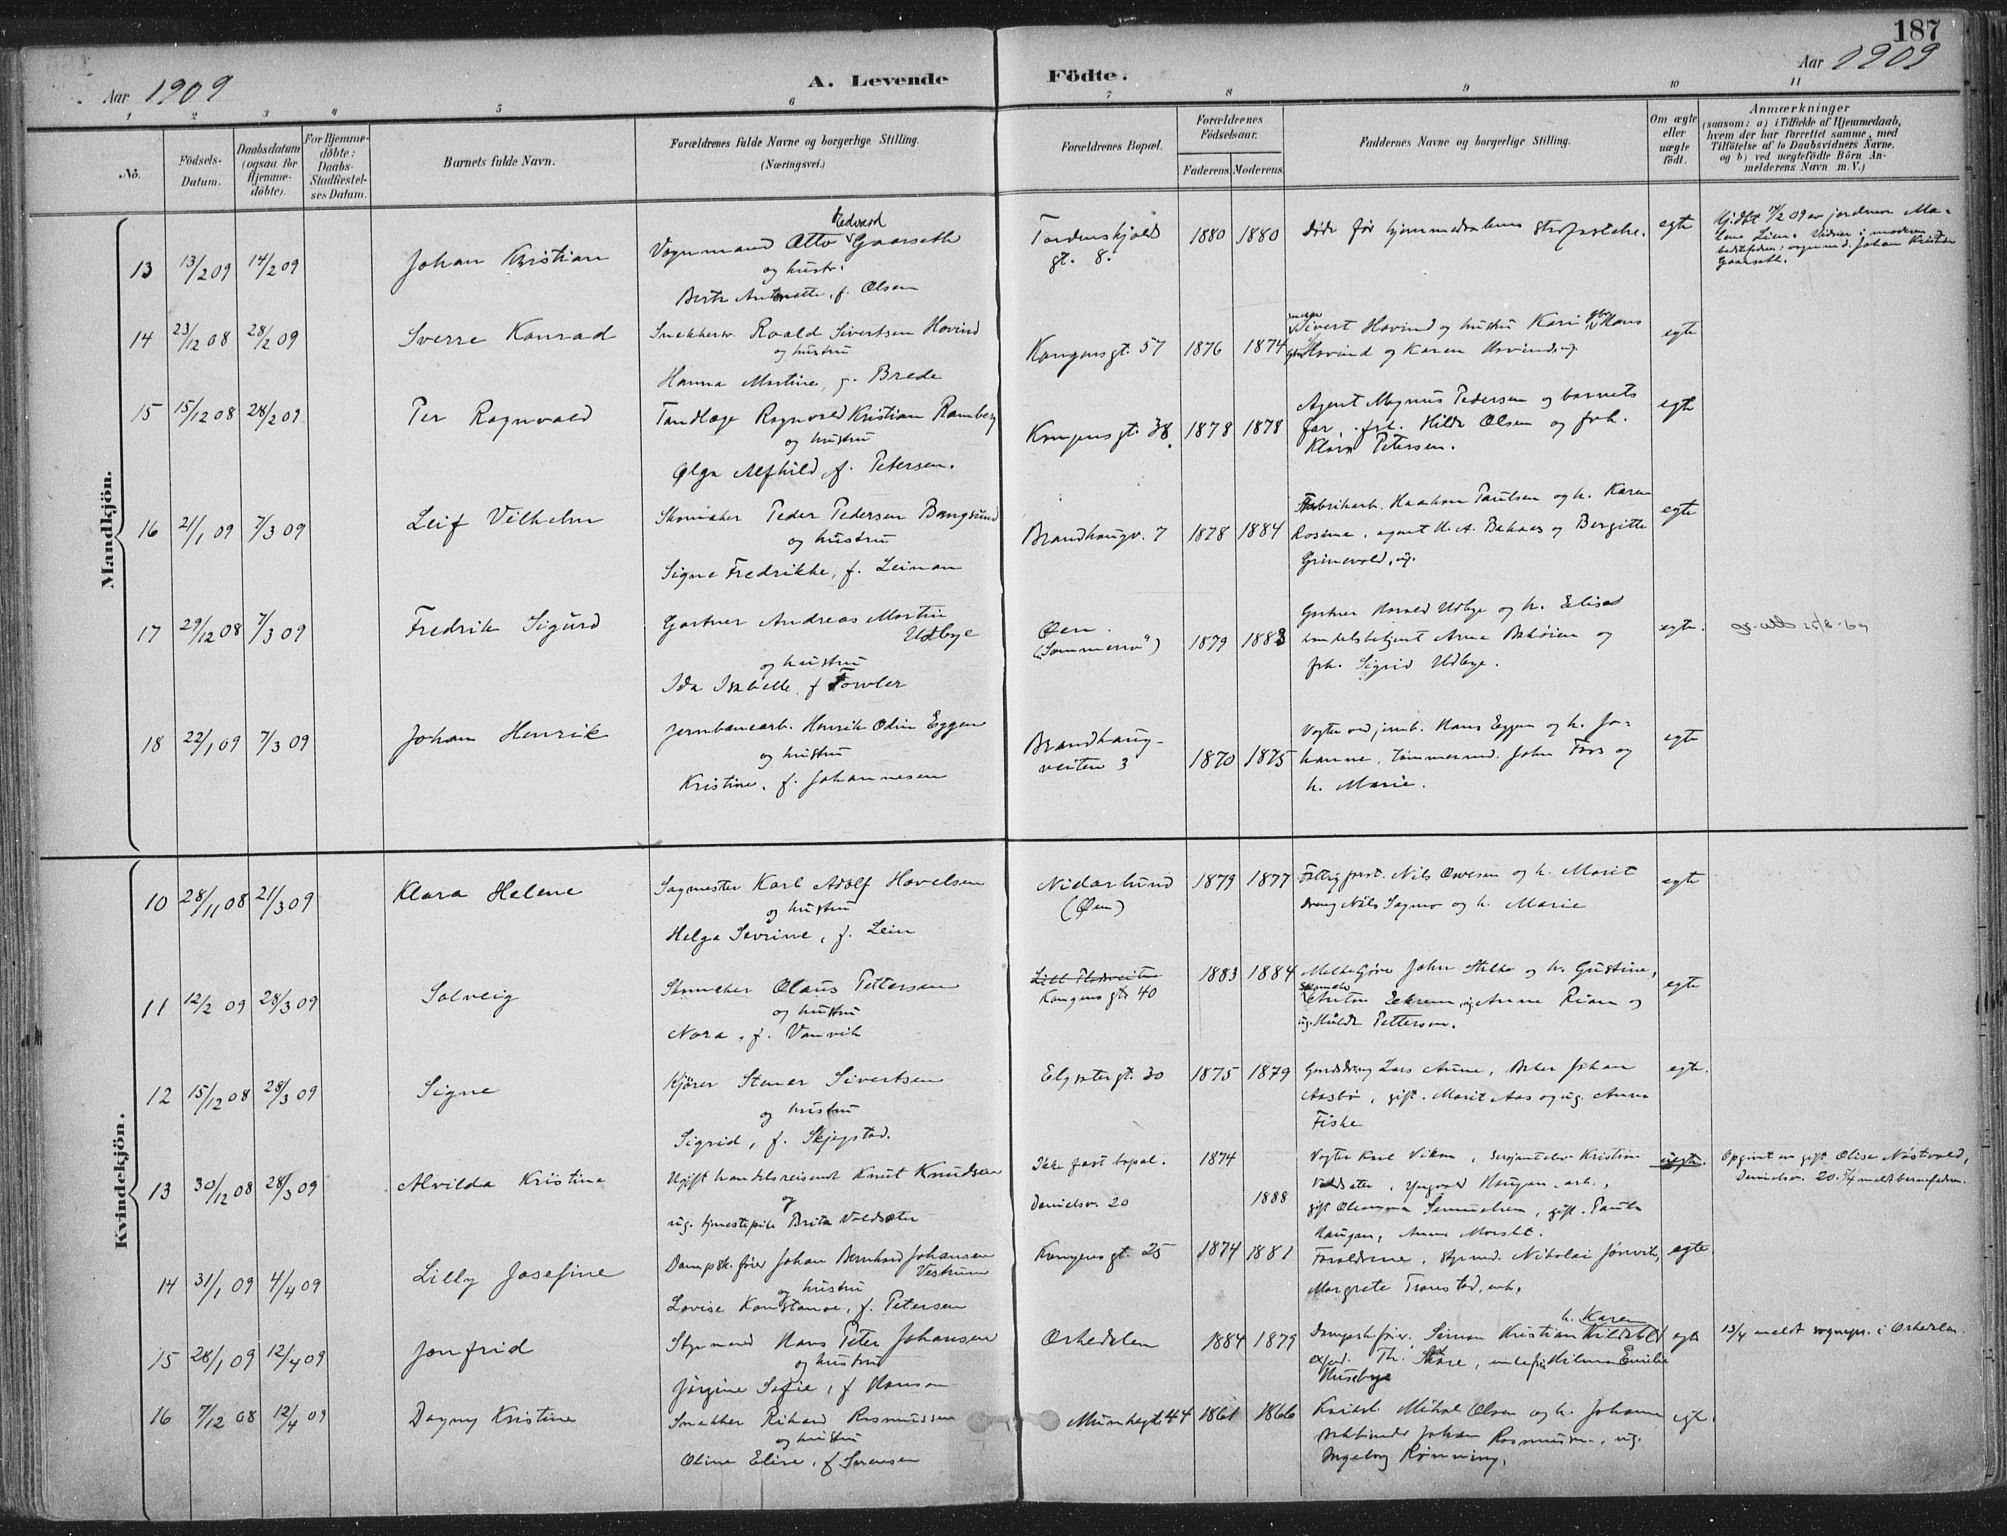 187
Aar 1909
A. Levende
Födte.
Aar 1909
1 2 3 4 5 6 7 8 9 10 11
No.
Födsels-Datum.
Daabsdatum (ogsaa for Hjemme-döbte).
For Hjemme-döbte: Daabs-Stadfæstel-ses Datum.
Barnets fulde Navn.
Forældrenes fulde Navne og borgerlige Stilling.
(Næringsvei.)
Forældrenes Bopæl.
Forældrenes Födselsaar.
Faderens. Moderens.
Faddernes Navne og borgerlig Stilling.
Om ægte eller uægte født.
Anmærkninger
(saasom: a) i Tilfælde af Hjemmedaab,
hvem der har forrettet samme, med
Tilföielse af to Daabsvidners Navne,
og b) ved uægtefödte Börn An-
melderens Navn m. V.)
Mandkjön.
13 13/2 09 14/2 09 Johan Kristian
Vognmand Otto Edvard Gaarseth
og hustr.
Berte Antonette, f. Olsen
Tordenskjolds
gt. 8.
1880 1880
Døde før hjemmedaabens stadfæstelse.
egte
14 23/12 08 28/2 09 Sverre Konrad
Snekkersv. Roald Sivertsen Hovind
og hustru
Hanna Martine, f. Brede
Kongensgt. 57 1876 1874
Sivert Hovind og hustru Kari Hans
Hovind og Karen
egte
15 15/12 08 28/2 09 Per Ragnvald
Tandlæge Ragnvald Kristian Ramberg
og hustru
Olga Alfhild, f. Petersen.
Kongensgt. 38. 1878 1878
Agent Magnus Pedersen og barnets
far, frk. Hilda Olsen og frk.
Klara Petersen.
egte
16 21/1 09 7/3 09 Leif Vilhelm
Skomaker Peder Pedersen Bangsund
og hustru
Signe Fredrikke, f. Leinan
Brandhaugv. 7 1878 1884
Fabrikarb. Haakon Paulsen og h. Karen
agent A. Baknes og Bergitte
Grinevold, ug.
egte
17 29/12 08 7/3 09 Fredrik Sigurd
Gartner Andreas Martin
Udbye
og hustru
Ida Isabelle, f. Fowler
Øen.
("Sommerro")
1879 1883
Gartner Harald Udbye og h. Elise
handelsbetjent Arne og
frk. Sigrid Udbye.
egte.
18 22/1 09 7/3 09 Johan Henrik
Jernbanearb. Henrik Odin Eggen
og hustru
Kristine, f. Johannesen
Brandhaug-
veiten 3
1870 1875
Vogter ved jernb. Hans Eggen og h. Jo-
hanne, tømmermd. John Foss og
h. Marie.
egte
Kvindekjön.
10 28/11 08 21/3 09 Klara Helene
Sagmester Karl Adolf Hovelsen
og hustru
Helga Sevrine, f. Lein
Nidarlund
(Øen)
1879 1877
Nils Owesen og h. Marit
dreng Nils Sagmo og h. Marie
egte
11 12/2 09 28/3 09 Solveig
Skomaker Olaus Pettersen
og hustru
Nora, f. Vanvik
Kongensgt. 40
1883 1884
John og h. Gustine,
skomaker Anton Eekrem, ug. Anne Rian og
ug. Hulda Pettersen.
egte
12 15/12 08 28/3 09 Signe
Kjører Stener Sivertsen
og hustru
Sigrid, f. Skjegstad.
Elgsetergt. 30 1875 1879
Gaardsdreng Lars Aune, Arb. Johan
Aasbø, gift. Marit Aas og ug. Anna
Fiske
egte.
13 30/12 08 28/3 09 Alvilda Kristine
Ugift handelsreisende Knut Knudsen
og
ug. tjenestepike Brita Voldsæter
Ikke fast bopæl.
Danielsv. 20
1874
1888
Vogter Karl Vikan, Kristian
Voldsæter, Yngvald Haugan, arb.,
gift Oleanna Samuelsen, gift. Paula
Haugan, Anna Morset.
uegte.
Opgivet av gift Elise Nøstvold,
Danielsv. 20. meldt barnefaderen.
14 31/1 09 4/4 09 Lilly Josefine
Dampsk. fører Johan Bernhard Johansen
Vestrum
og hustru
Lovise Konstanse, f. Petersen
Kongensgt. 25 1874 1881
Forældrene, styrmd. Nikolai Jønvik,
Margrete Tronstad, enke.
egte.
15 28/1 09 12/4 09 Jonfrid
Styrmand Hans Peter Johansen
og hustru
Jørgine Sofie, f. Hansen
Orkedalen 1884 1879
h. Karen
Dampskfører. Simon Kristian Kildebol
exped. Th. Skare, enkefru Hilma Emilie
Huseby
egte
13/4 meldt sognepr. i Orkedalen.
16 7/12 08 12/4 09 Dagny Kristine
Snekker Rikard Rasmussen
og hustru
Oline Elise, f. Sørensen
Munkegt. 44 1861 1866
Mikal Olsen og h. Johanna
Johan Rasmussen, ug.
Ingeborg Rønning.
egte.